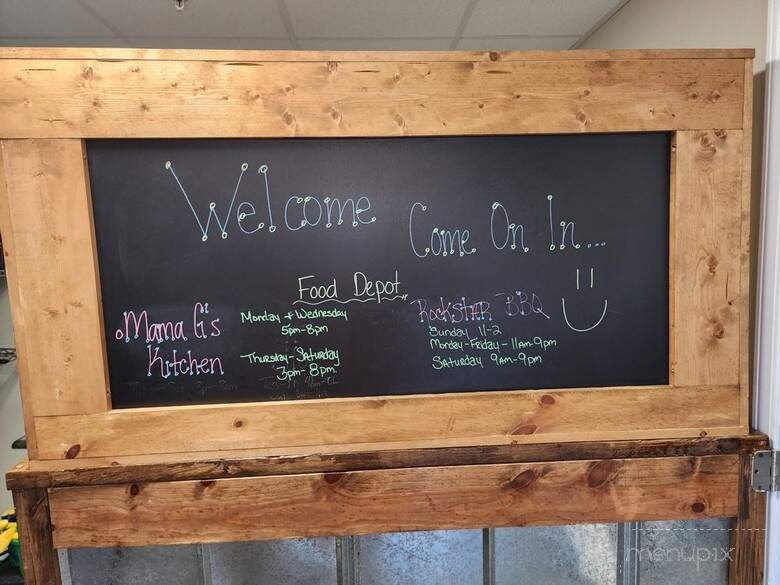 Welcome
Come On In...
Food Depot
Mama G's
Kitchen
Monday + Wednesday
5pm-8pm
Thursday-Saturday
3pm-8pm
RockstAR BBQ
Sunday 11-2
Monday-Friday-11AM-9pm
SATURDAY 9AM-9pm
menupix